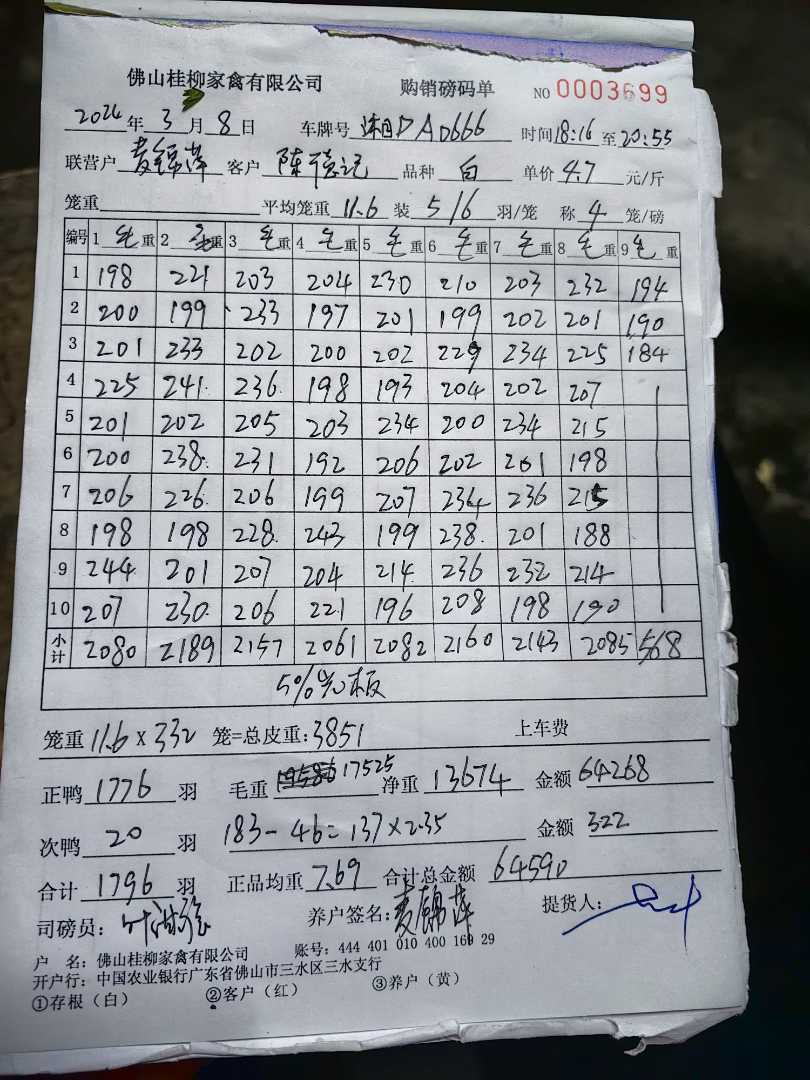 佛山桂柳家禽有限公司 购销磅码单 NO 0003699
2024年3月8日 车牌号 DAD666 时间18:16至20:55
联营户 麦锦萍 客户 陈德记 品种 白 单价4.7元/斤
笼重 平均笼重 11.6 装 5/6 羽/笼 称 4 笼/磅
编号 1 毛重 2 毛重 3 毛重 4 毛重 5 毛重 6 毛重 7 毛重 8 毛重 9 毛重
1 198 221 203 204 230 210 203 232 194
2 200 199 233 197 201 199 202 201 190
3 201 233 202 200 202 229 234 225 184
4 225 241 236 198 193 204 202 207
5 201 202 205 203 234 200 234 215
6 200 238 231 192 206 202 201 198
7 206 226 206 199 207 234 236 215
8 198 198 228 243 199 238 201 188
9 244 201 207 204 214 236 232 214
10 207 230 206 221 196 208 198 190
小计 2080 2189 2157 2061 2082 2160 2143 2085 568
5%
笼重 11.6 x 332 笼=总皮重:3851 上车费
正鸭 1776 羽 毛重 17525 净重 13674 金额 64268
次鸭 20 羽 183-46=137×2.35 金额 322
合计 1796 羽 正品均重 7.69 合计总金额 64590
司磅员: 养户签名:麦锦萍 提货人:
户 名:佛山桂柳家禽有限公司 账号:444 401 010 400 169 29
开户行:中国农业银行广东省佛山市三水区三水支行
①存根(白) ②客户(红) ③养户(黄)